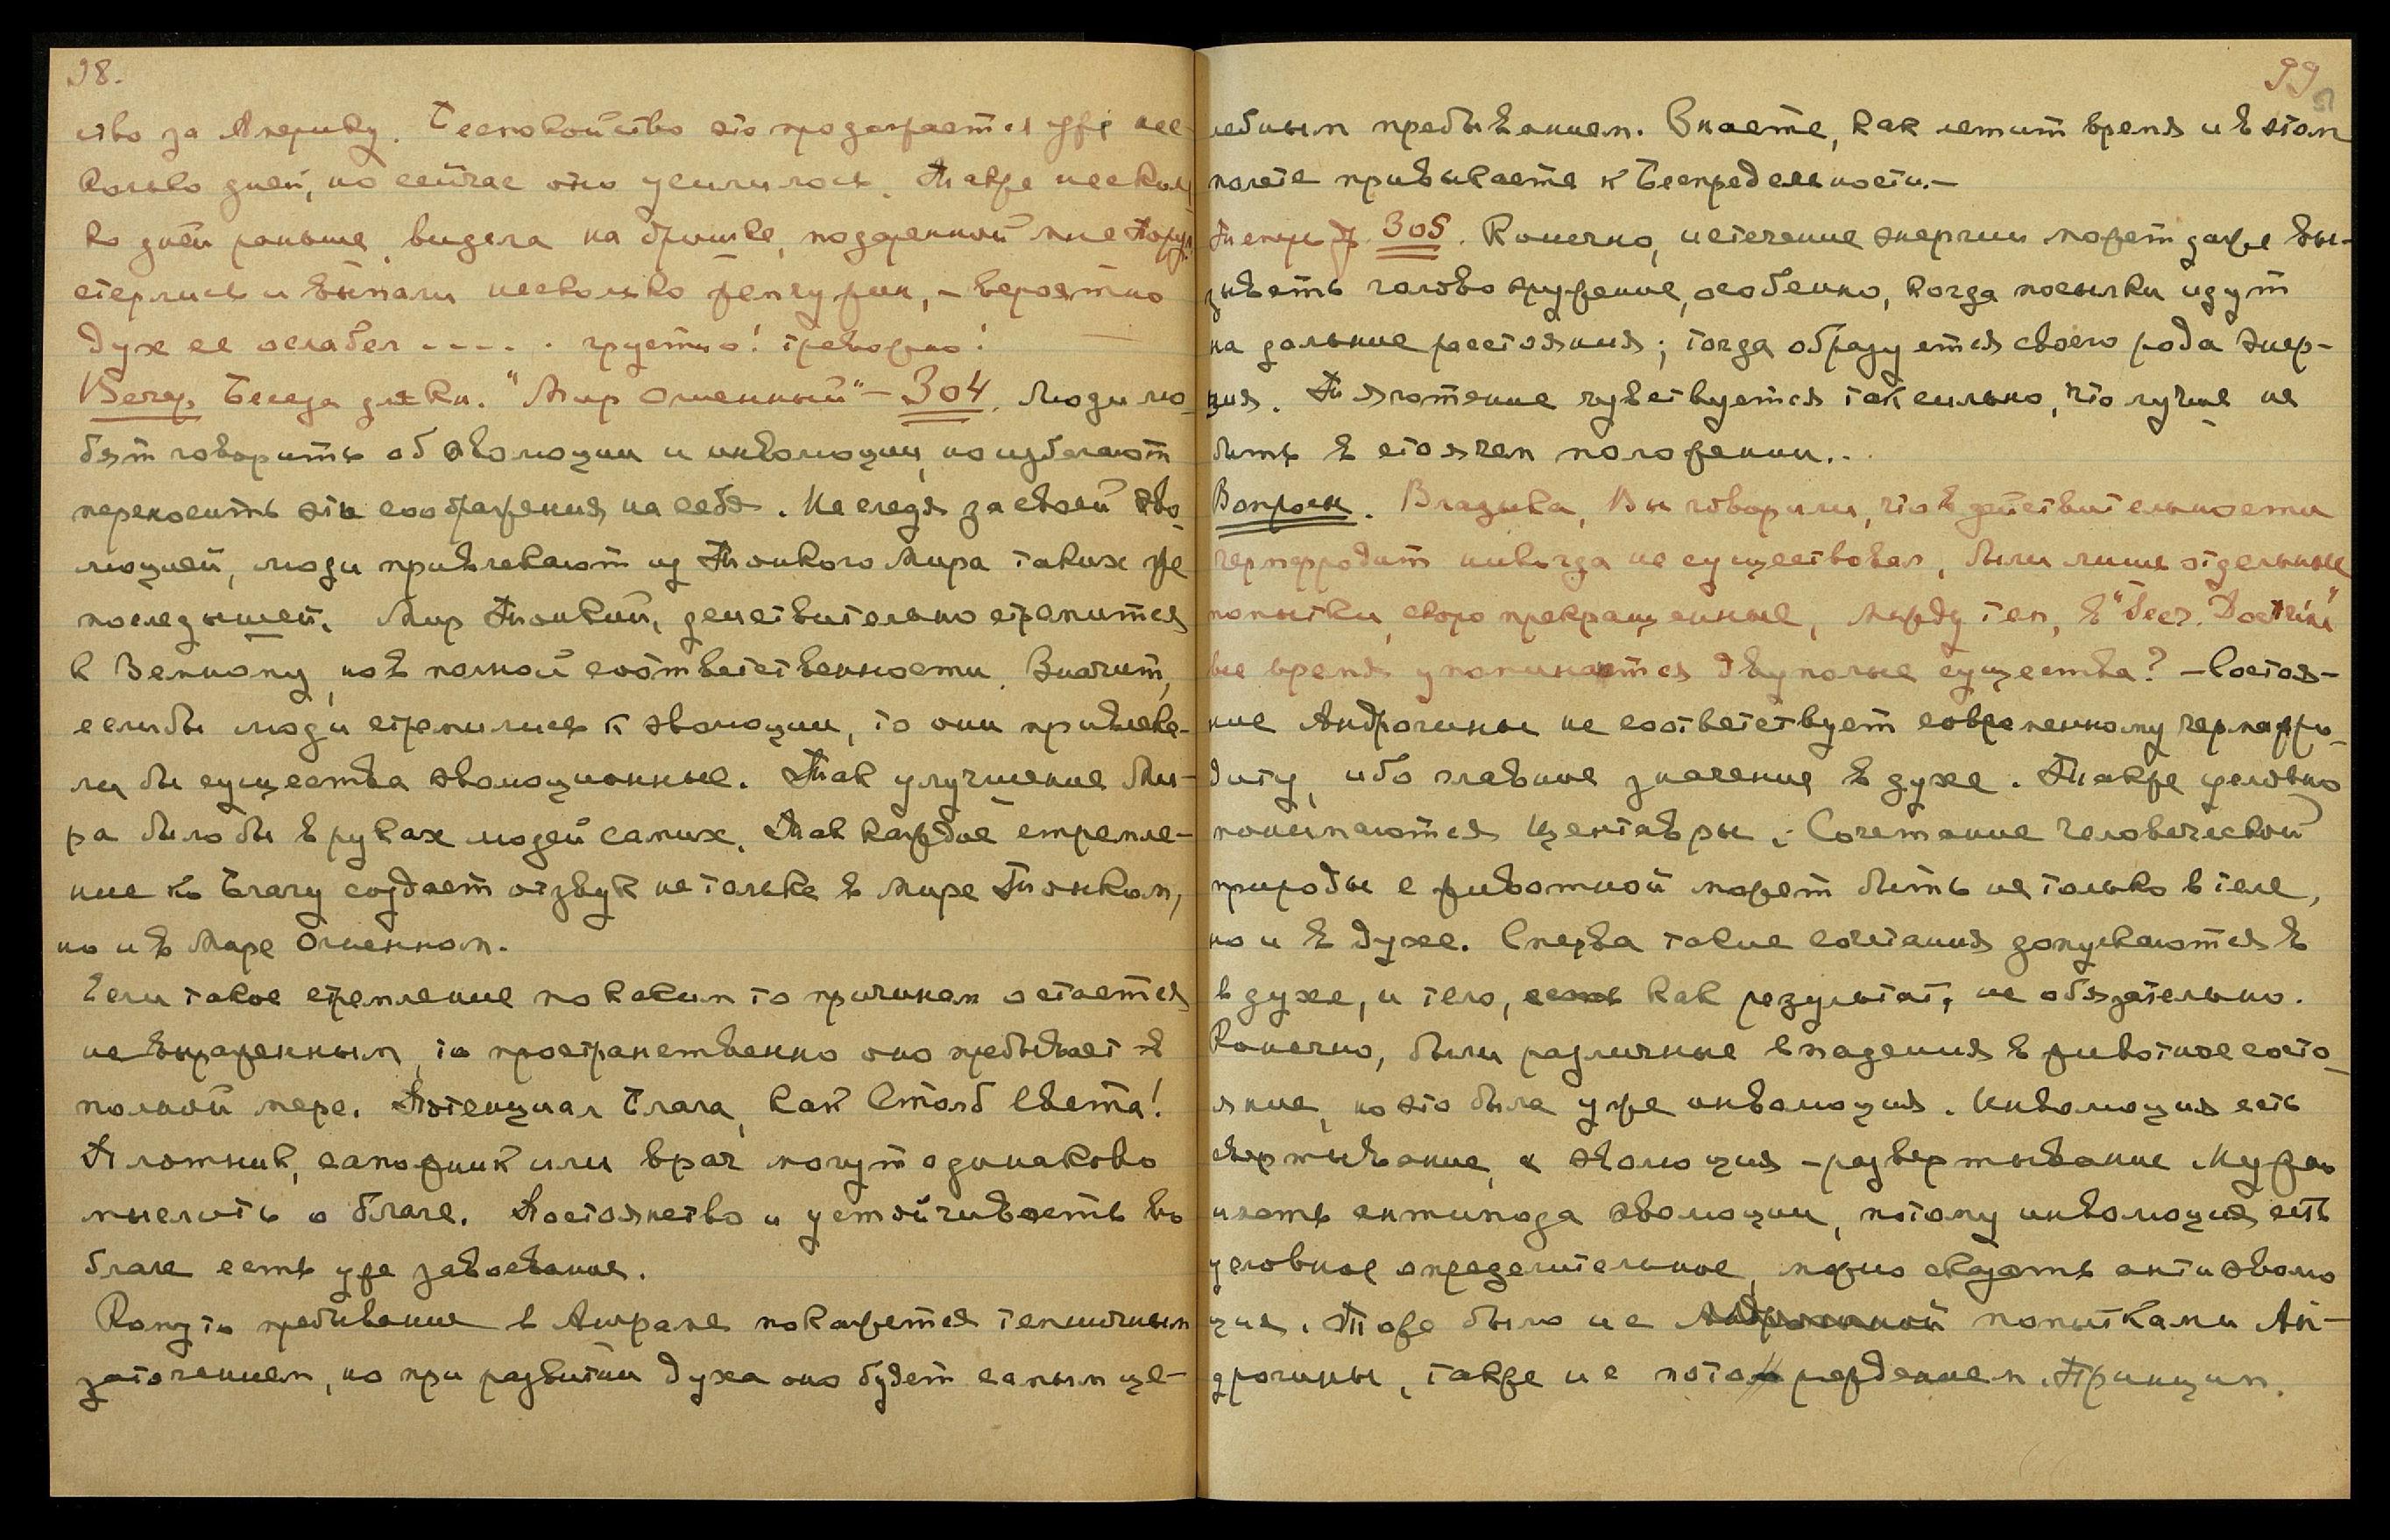 98.
ство за Америку. Беспокойство это продолжается уже нес-
колько дней, но сейчас оно усилилось. Также несколь
ко дней раньше видела на брошке, подаренной мне
стерлись и выпали несколько жемчужин, – вероятно
дух ее ослабел - - - - . грустно! тревожно!
Вечер. Беседа "Мир Огненный" – 304. Люди лю-
бят говорить об эволюции и инволюции, но избегают
переносить эти соображения на себя. Не следя за своей эво-
люцией, люди привлекают из Тонкого Мира таких же
последышей. Мир Тонкий, действительно стремится
к Земному, но в полной соответственности. Значит,
если бы люди стремились к эволюции, то они привлека-
ли бы существа эволюционные. Так улучшение Ми-
ра было бы в руках людей самих. Так каждое стремле-
ние ко Благу создает отзвук не только в мире Тонком,
но и в Мире Огненном.
Если такое стремление по каким то причинам остается
не выраженным, то пространственно оно пребывает в
полной мере. Потенциал Блага, как Столб Света!
Плотник, сапожник или врач могут одинаково
мыслить о благе. Постоянство и устойчивость во
благе есть уже завоевание.
Кому то пребывание в Ашраме покажется темничным
заточением, но при развитии духа оно будет самым це-
99
лебным пребыванием. Знаете, как летит время и в этом
полете привыкаете к Беспредельности.–
305. Конечно, истечение энергии может даже вы-
звать головокружение, особенно, когда посылки идут
на дальние расстояния; тогда образуется своего рода энер-
гия. Тяготение чувствуется так сильно, что лучше не
быть в стоячем положении..
Вопросы. Владыка, Вы говорили, что в действительности
гермафродит никогда не существовал, были лишь отдельные
попытки, скоро прекращенные, между тем, в "Secr. Doctrine"
все время упоминаются двуполые существа? – Состоя-
ние Андрогины не соответствует современному гермафро-
диту, ибо главное значение в духе. Также условно
понимаются Центавры. Сочетание человеческой
природы с животной может быть не только в теле,
но и в духе. Сперва такие сочетания допускаются в
в духе, и тело, как результат, не обязательно.
Конечно, были различные впадения в животное состо-
яние, но это была уже инволюция. Инволюция есть
свертывание, а эволюция – развертывание. Нужно
искать антипода эволюции, потому инволюция есть
условное определительное, можно сказать антиэволю
ция. Тоже было и с попытками Ан-
дрогины, также и с рождением. Принцип.